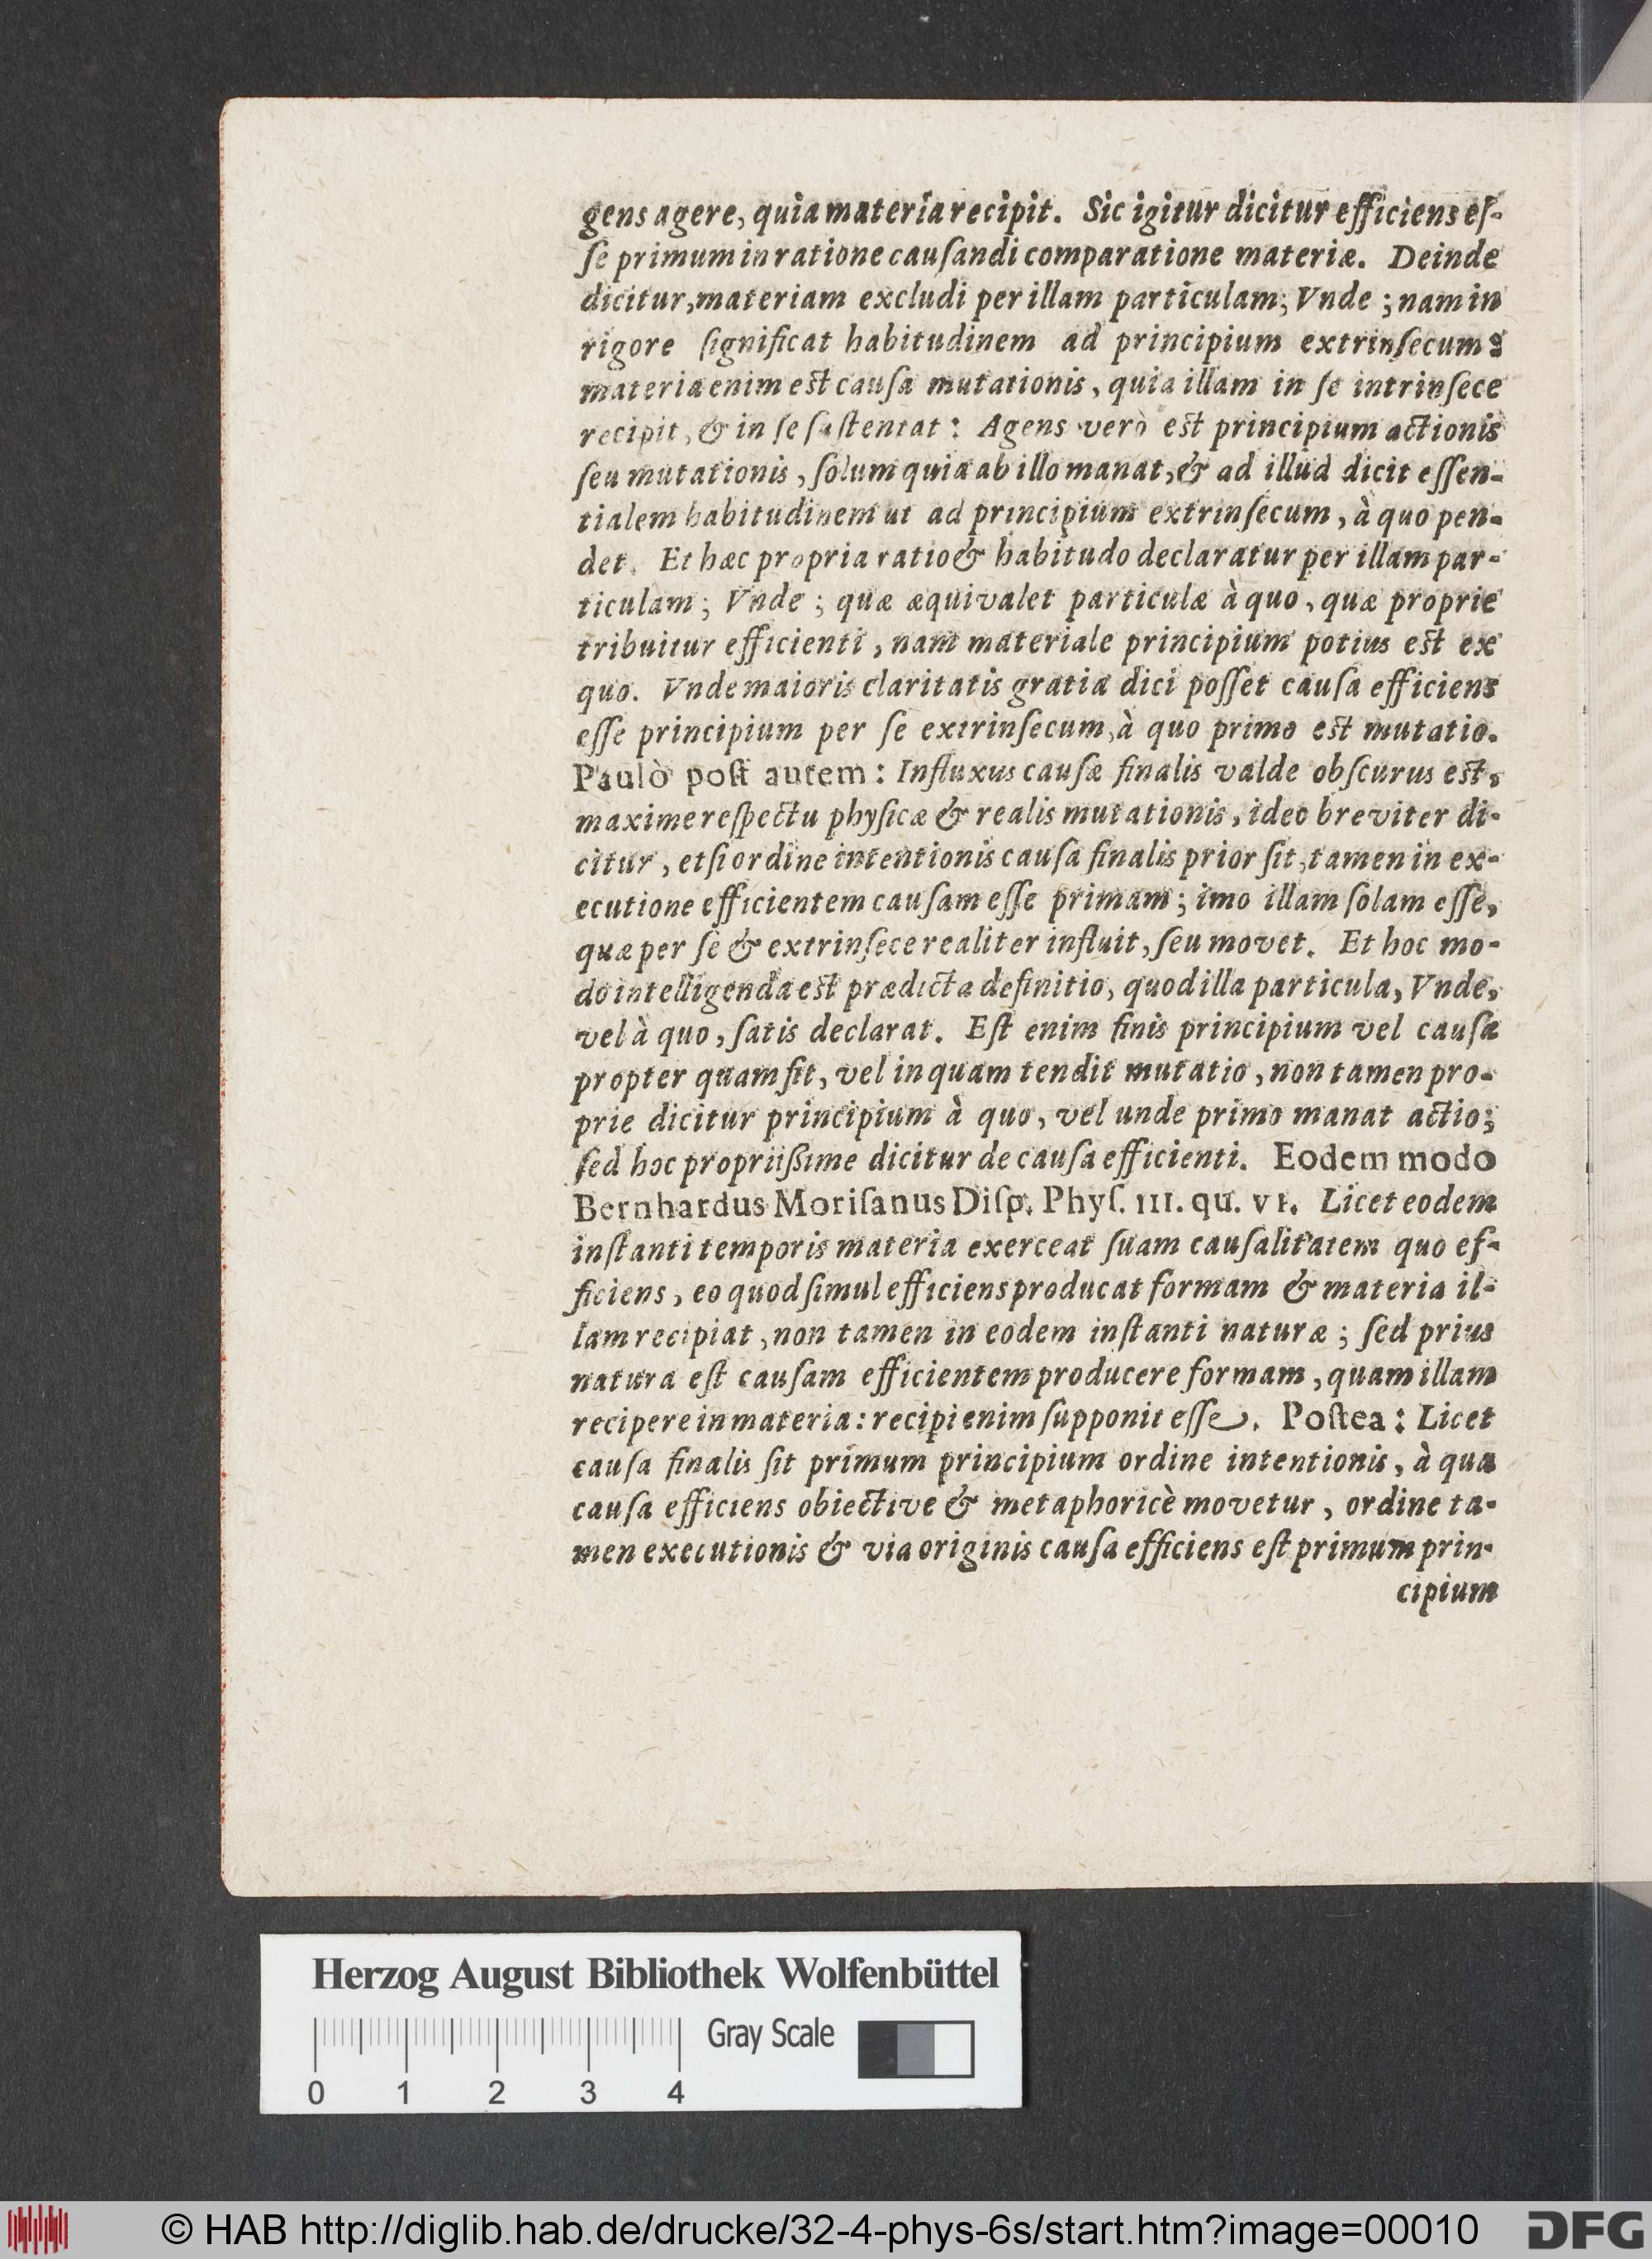 gens agere, quia materia recipit. Sic igitur dicitur efficiens eſ-
ſe primum in ratione cauſandi comparatione materiæ. Deinde
dicitur, materiam excludi per illam particulam; Vnde; nam in
rigore ſignificat habitudinem ad principium extrinſecum:
materia enim est cauſa mutationis, quia illam in ſe intrinſece
recipit, & in ſe ſuſtentat: Agens verò est principium actionis
ſeu mutationis, ſolum quia ab illo manat, & ad illud dicit eſſen-
tialem habitudinem ut ad principium extrinſecum, à quo pen-
det. Et hæc propria ratio & habitudo declaratur per illam par-
ticulam; Vnde; quæ æquivalet particulæ à quo, quæ proprie
tribuitur efficienti, nam materiale principium potius est ex
quo. Vnde maioris claritatis gratia dici poſſet cauſa efficiens
eſſe principium per ſe extrinſecum, à quo primo est mutatio.
Paulò poſt autem: Influxus cauſæ finalis valde obſcurus est,
maxime reſpectu phyſicæ & realis mutationis, ideo breviter di-
citur, etſi ordine intentionis cauſa finalis prior ſit, tamen in ex-
ecutione efficientem cauſam eſſe primam; imo illam ſolam eſſe,
quæ per ſe & extrinſece realiter influit, ſeu movet. Et hoc mo-
do intelligenda est prædicta definitio, quod illa particula, Vnde,
vel à quo, ſatis declarat. Eſt enim finis principium vel cauſa
propter quam fit, vel in quam tendit mutatio, non tamen pro-
prie dicitur principium à quo, vel unde primo manat actio;
ſed hoc propriißime dicitur de cauſa efficienti. Eodem modo
Bernhardus Moriſanus Diſp. Phyſ. III. qu. VI. Licet eodem
inſtanti temporis materia exerceat ſuam cauſalitatem quo ef-
ficiens, eo quod ſimul efficiens producat formam & materia il-
lam recipiat, non tamen in eodem inſtanti naturæ; ſed prius
natura eſt cauſam efficientem producere formam, quam illam
recipere in materia: recipi enim ſupponit eſſe. Poſtea: Licet
cauſa finalis ſit primum principium ordine intentionis, à qua
cauſa efficiens obiective & metaphoricè movetur, ordine ta-
men executionis & via originis cauſa efficiens eſt primum prin-
cipium
Herzog August Bibliothek Wolfenbüttel
Gray Scale
0 1 2 3 4
© HAB http://diglib.hab.de/drucke/32-4-phys-6s/start.htm?image=00010
DFG